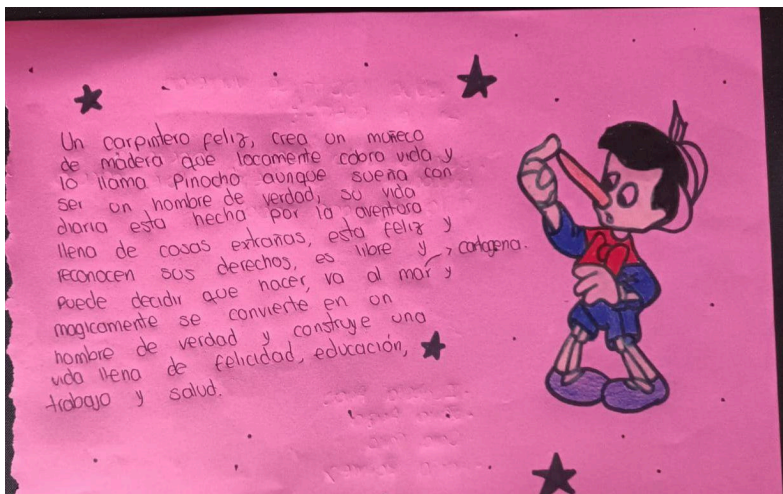 Un carpintero feliz, crea un muñeco
de madera que locamente cobra vida y
lo llama Pinocho aunque sueña con
ser un hombre de verdad, su vida
diaria esta hecha por la aventura
llena de cosas extrañas, esta feliz y
reconocen sus derechos, es libre y
puede decidir que hacer, va al mar y cartagena.
magicamente se convierte en un
hombre de verdad y construye una
vida llena de felicidad, educación,
trabajo y salud.